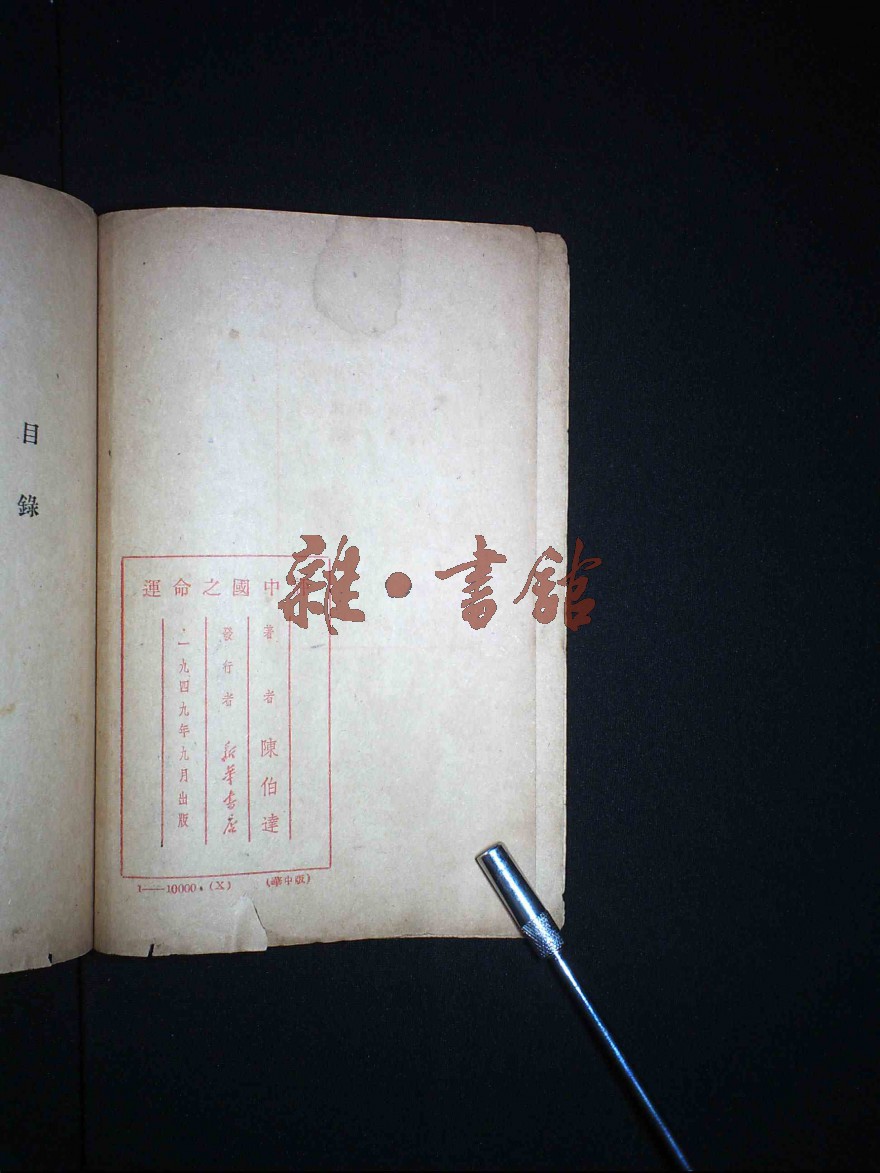 中國之命運
著者 陳伯達
發行者 新華書店
一九四九年九月出版
1——10000.(X) (華中版)
目錄
雜·書館